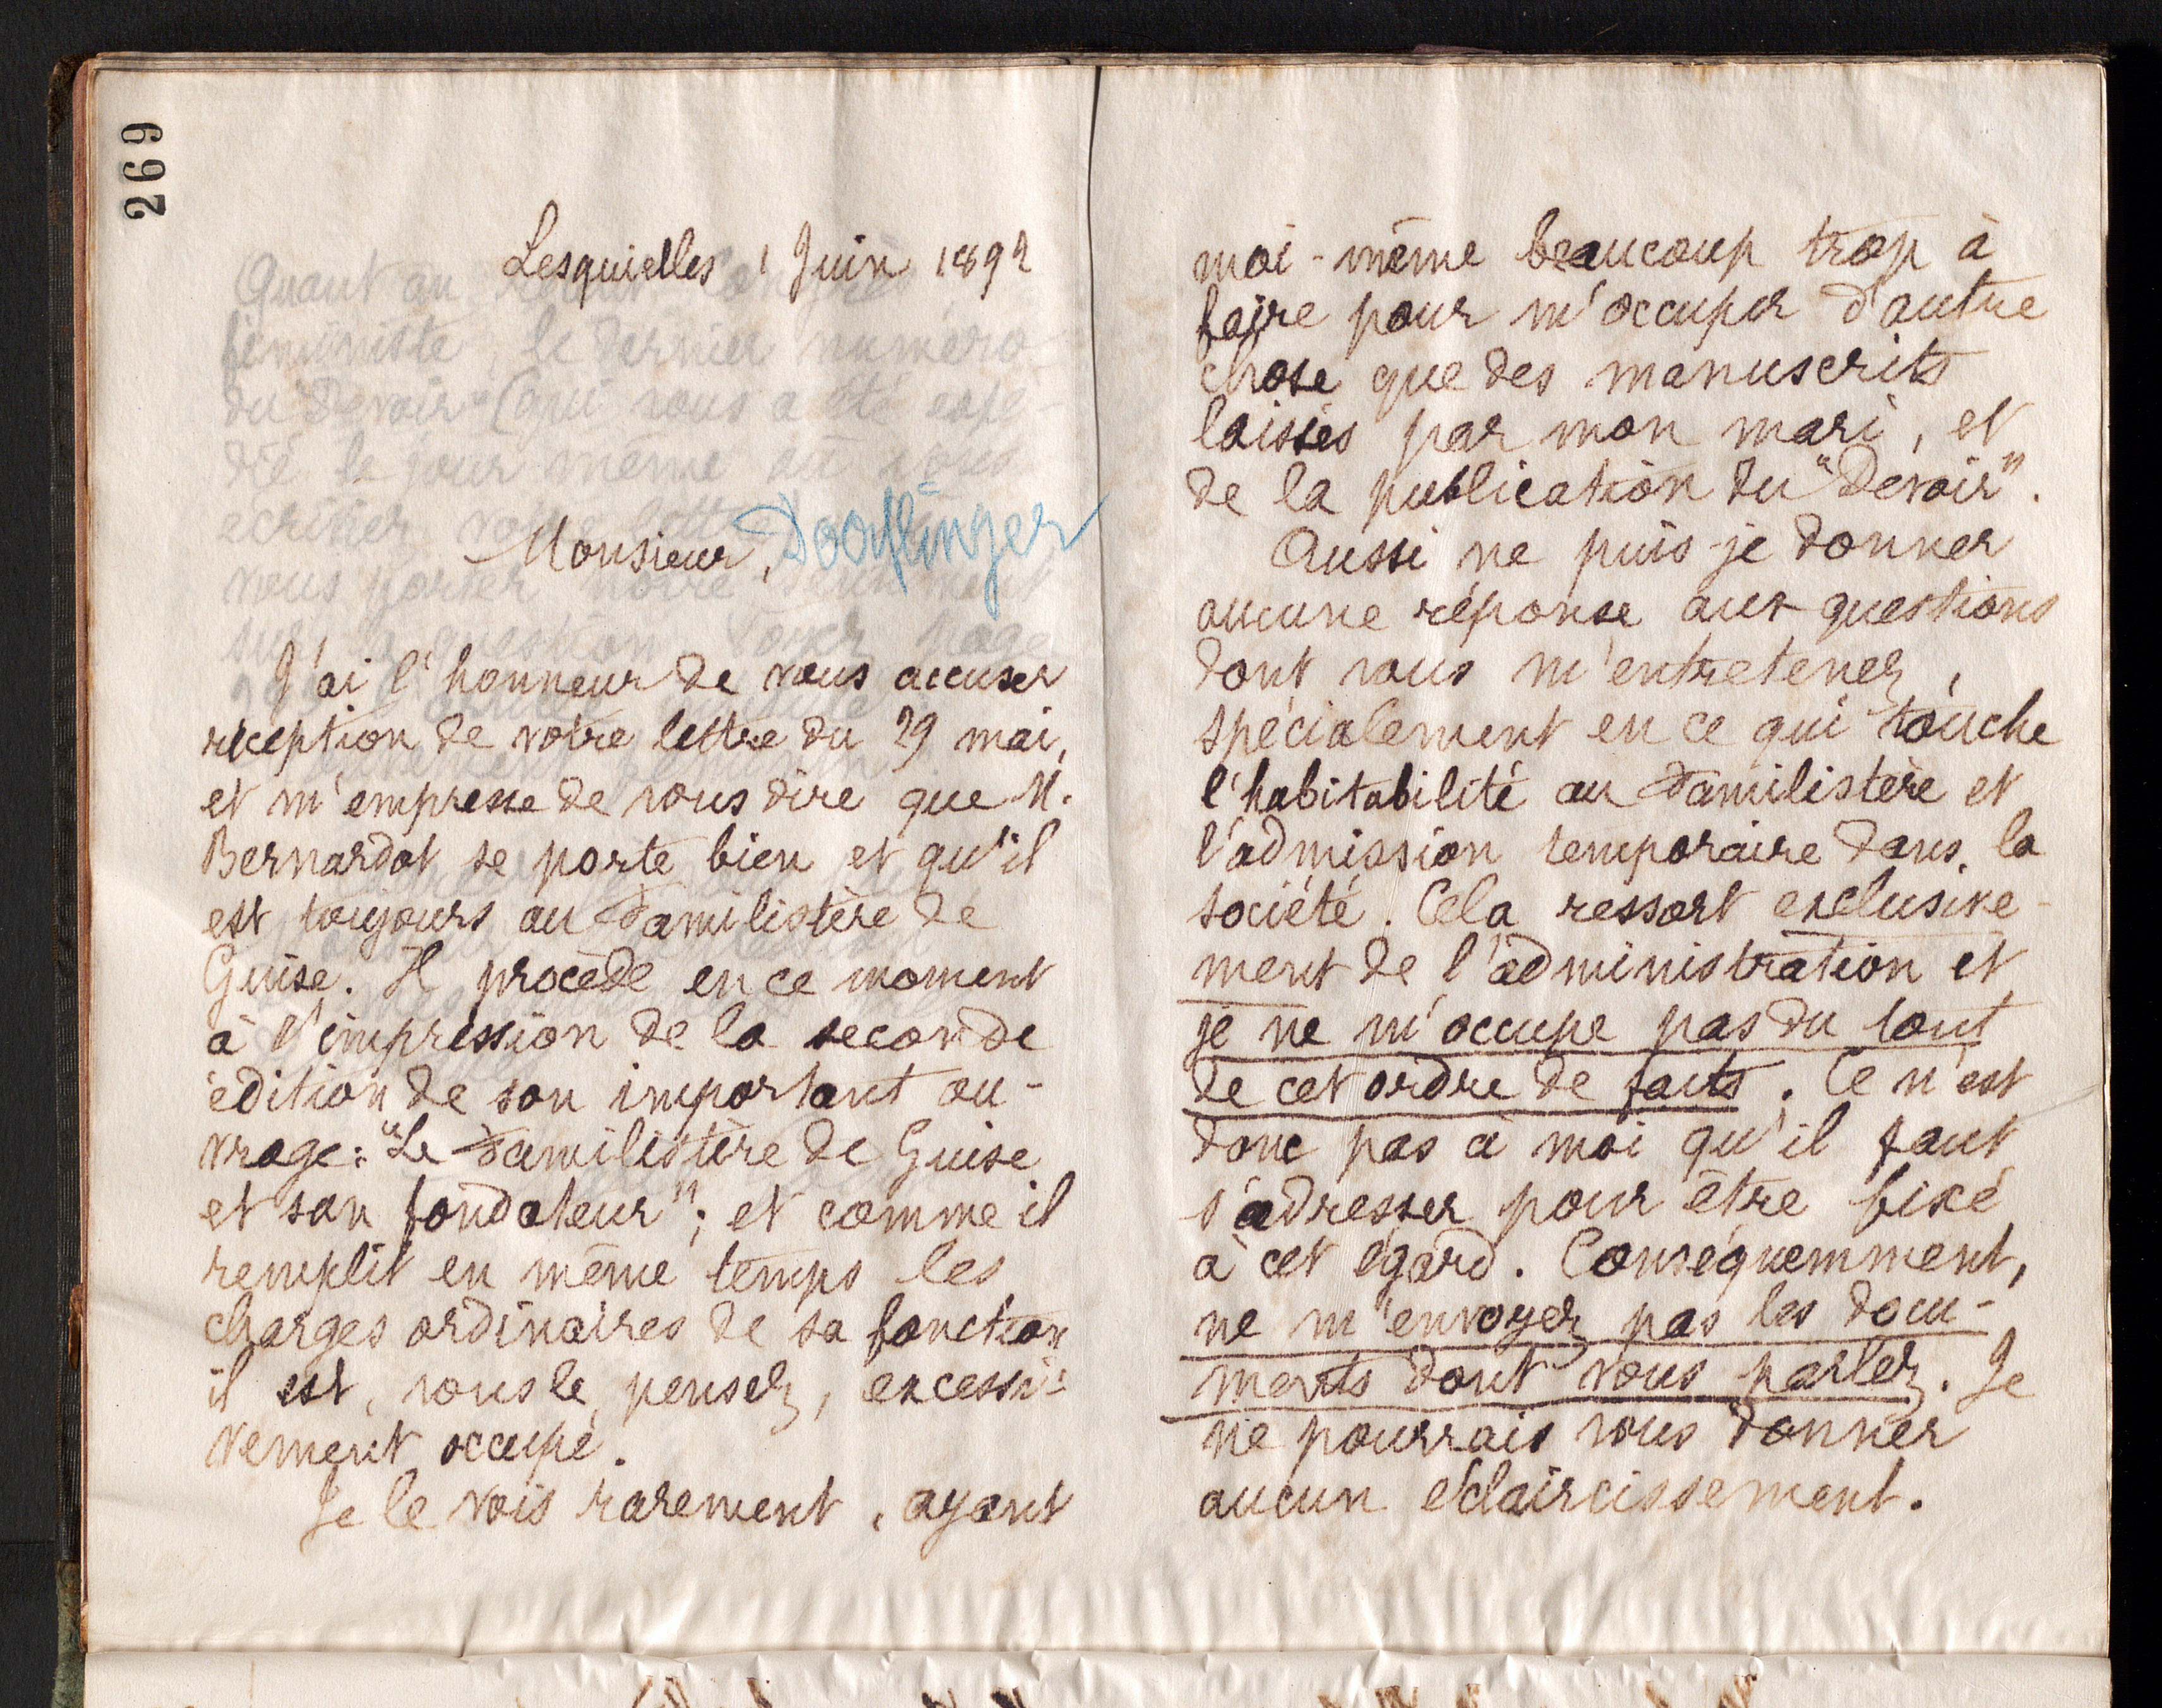 269
Lesquielles 1 Juin 1892
Monsieur, Dooflinger
J'ai l'honneur de vous accuser
réception de votre lettre du 29 mai,
et m'empresse de vous dire que M.
Bernardot se porte bien et qu'il
est toujours au Familistère de
Guise. Il procède en ce moment
à l'impression de la seconde
édition de son important ou-
vrage: "Le Familistère de Guise
et son fondateur"; et comme il
remplit en même temps les
charges ordinaires de sa fonction
il est, vous le pensez, excessi-
vement occupé.
Je le vois rarement, ayant
moi-même beaucoup trop à
faire pour m'occuper d'autre
chose que des manuscrits
laissés par mon mari, et
de la publication du "Devoir".
Aussi ne puis-je donner
aucune réponse aux questions
dont vous m'entretenez,
spécialement en ce qui touche
l'habitabilité au Familistère et
l'admission temporaire dans la
société. Cela ressort exclusive-
ment de l'administration et
je ne m'occupe pas du tout
de cet ordre de faits. Ce n'est
donc pas à moi qu'il faut
s'adresser pour être fixé
à cet égard. Conséquemment,
ne m'envoyez pas les docu-
ments dont vous parlez. Je
ne pourrais vous donner
aucun éclaircissement.